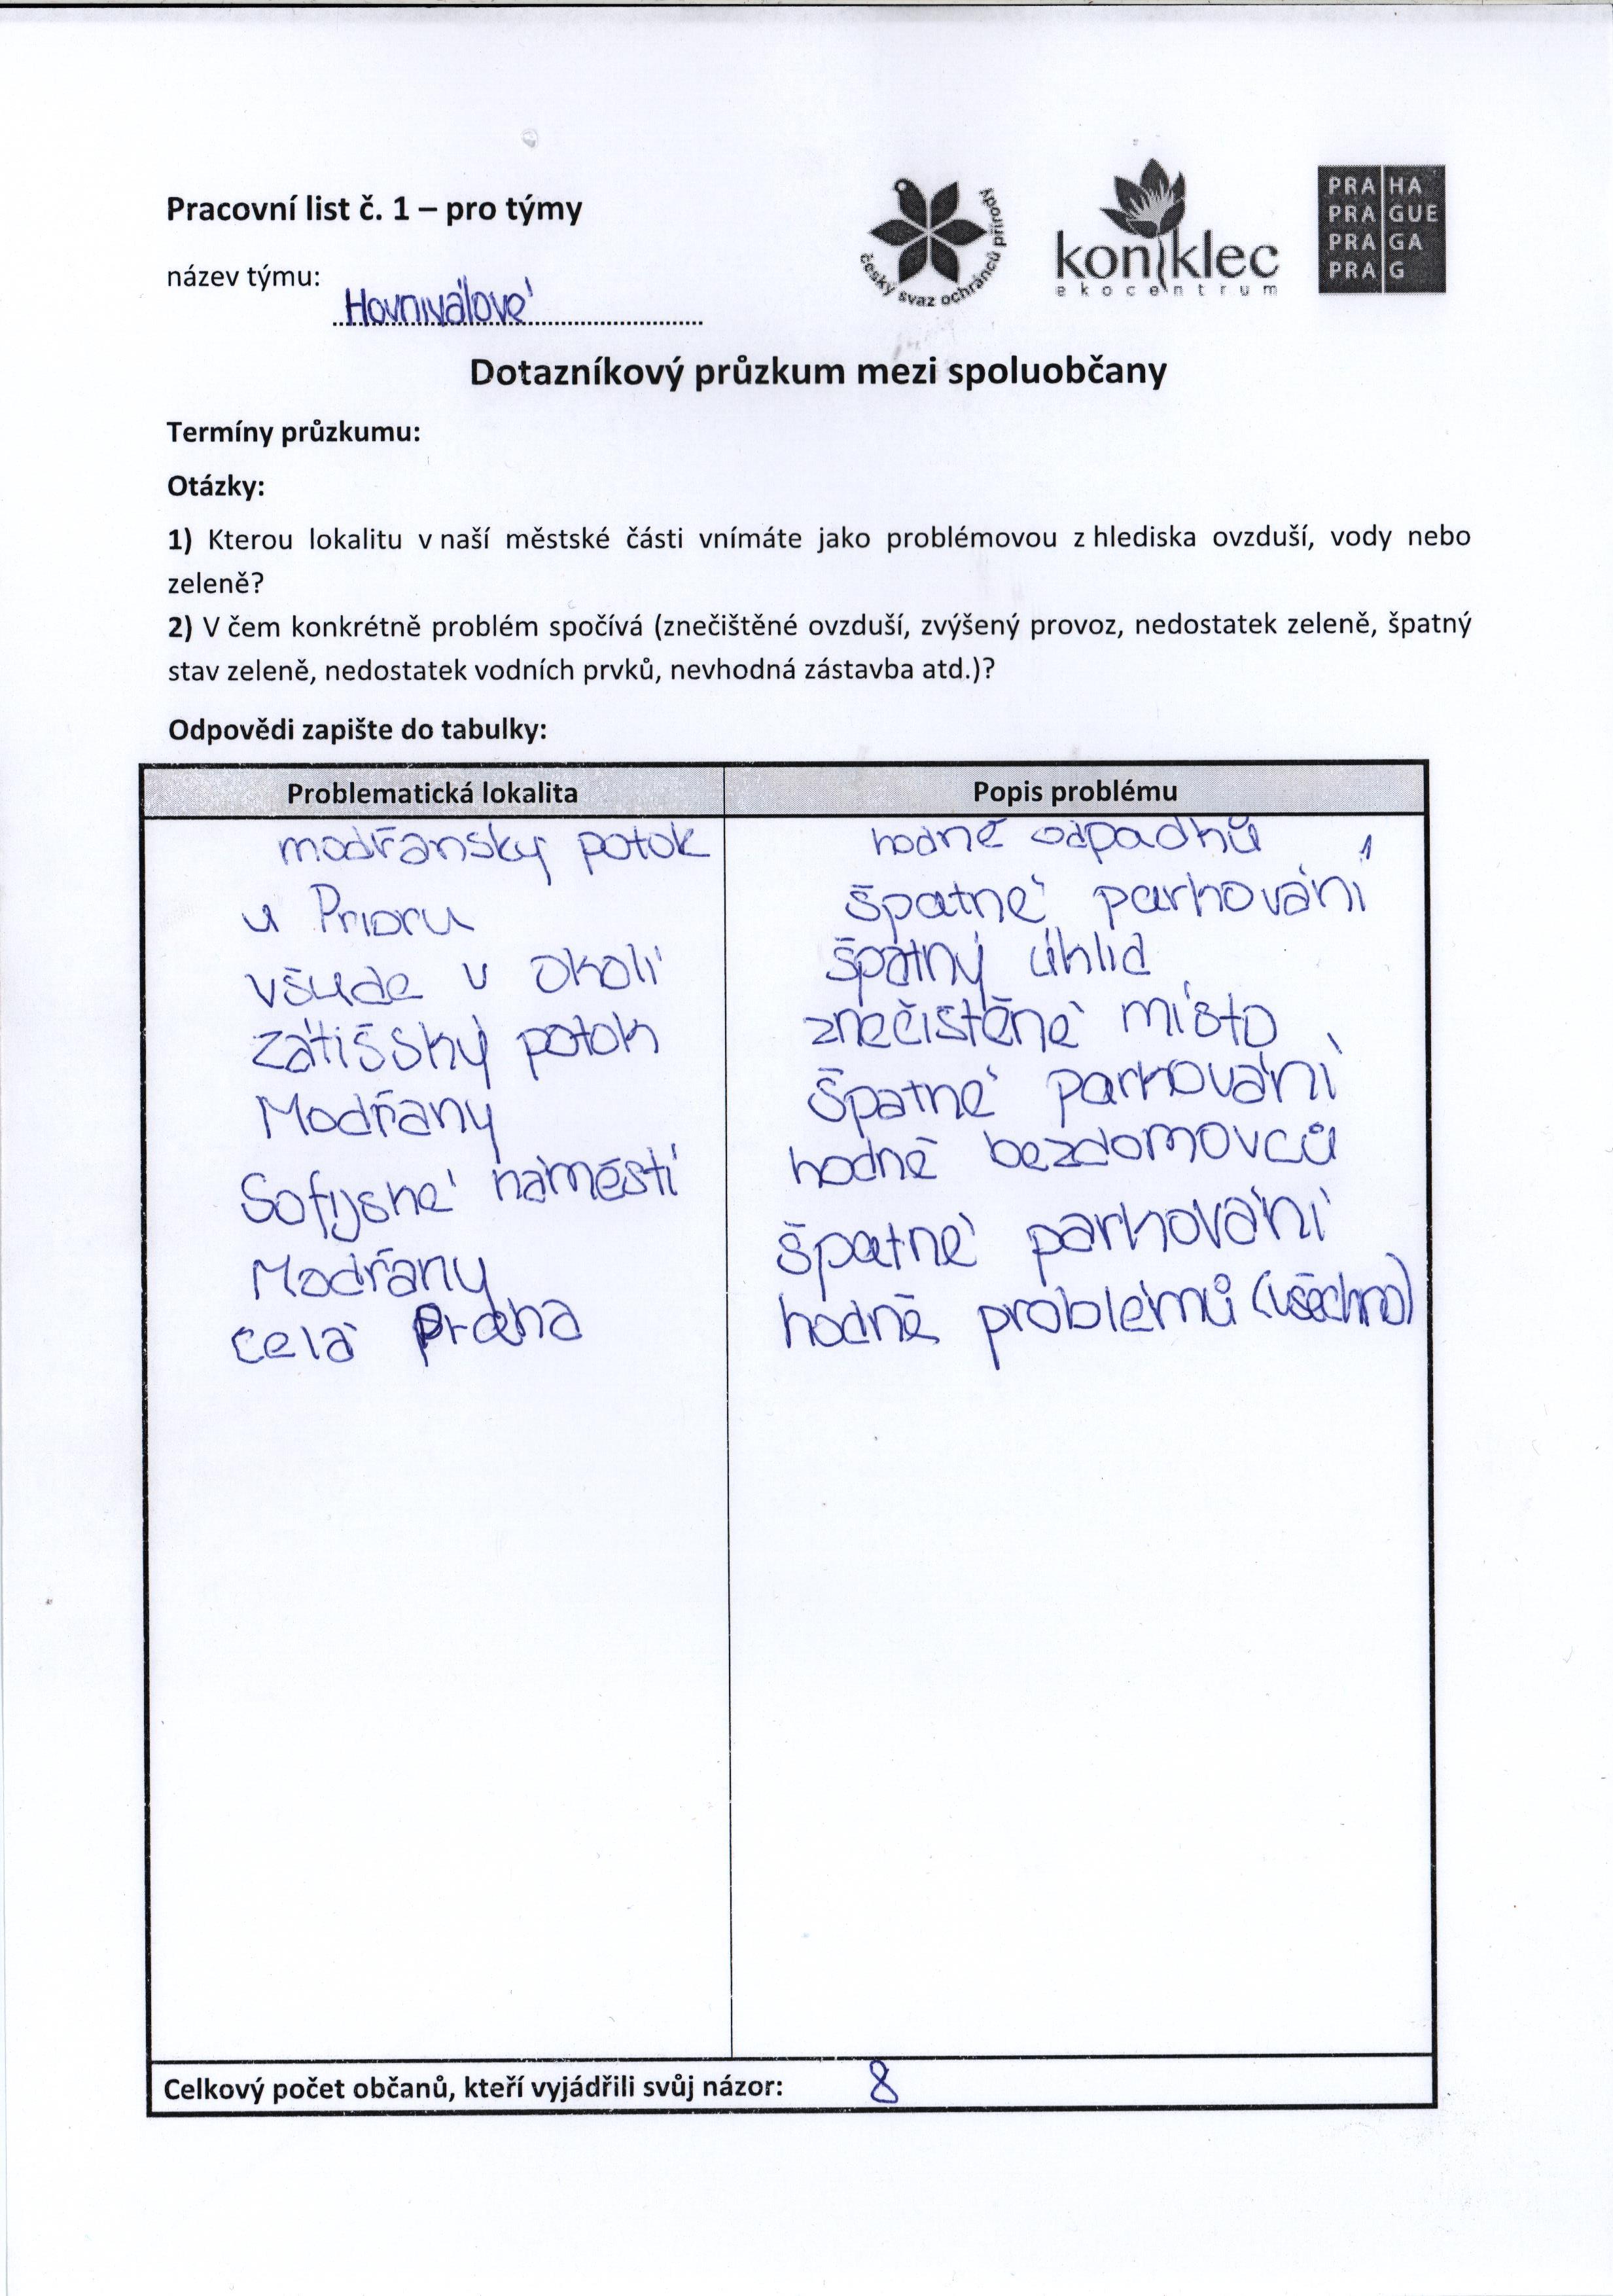 Pracovní list č. 1 – pro týmy
název týmu: Hovniválové
český svaz ochránců přírody
koniklec
ekocentrum
PRA HA
PRA GUE
PRA GA
PRA G
Dotazníkový průzkum mezi spoluobčany
Termíny průzkumu:
Otázky:
1) Kterou lokalitu v naší městské části vnímáte jako problémovou z hlediska ovzduší, vody nebo
zeleně?
2) V čem konkrétně problém spočívá (znečištěné ovzduší, zvýšený provoz, nedostatek zeleně, špatný
stav zeleně, nedostatek vodních prvků, nevhodná zástavba atd.)?
Odpovědi zapište do tabulky:
Problematická lokalita Popis problému
modřanský potok hodně odpadků
u Prioru špatné parkování
všude v okolí špatný úhlid
zátišský potok znečištěné místo
Modřany špatné parkování
Sofijské náměstí hodně bezdomovců
Modřany špatné parkování
celá Praha hodně problémů (všechno)
Celkový počet občanů, kteří vyjádřili svůj názor: 8